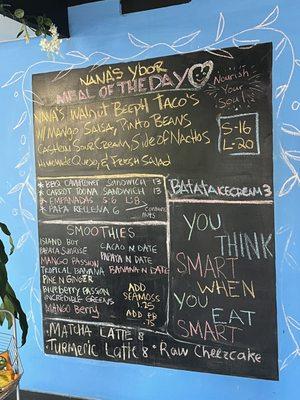 Nana's Ybor
Meal of the Day
Nourish
Your
Soul!
Nana's Walnut Beeph Taco's
w/ Mango Salsa, Pinto Beans
Cashew Sour Cream, Side of Nachos
Homemade Queso, & Fresh Salad
S-16
L-20
* BBQ Camplenet Sandwich 13
* Carrot Toona Sandwich 13
* Empanadas $6
* Papa Rellena 6
contains
nuts
Batata Icecream 3
Smoothies
Island Boy
Papaya Sunrise
Mango Passion
Tropical Banana
Pine N Ginger
Blueberry Passion
Incredible Greens
Mango Berry
Cacao N Date
Papaya N Date
Banana N Date
Add
Seamoss
1.25
Add PB
.75
You
Think
Smart
When
You Eat
Smart
Matcha Latte 8
Turmeric Latte 8 • Raw Cheezcake